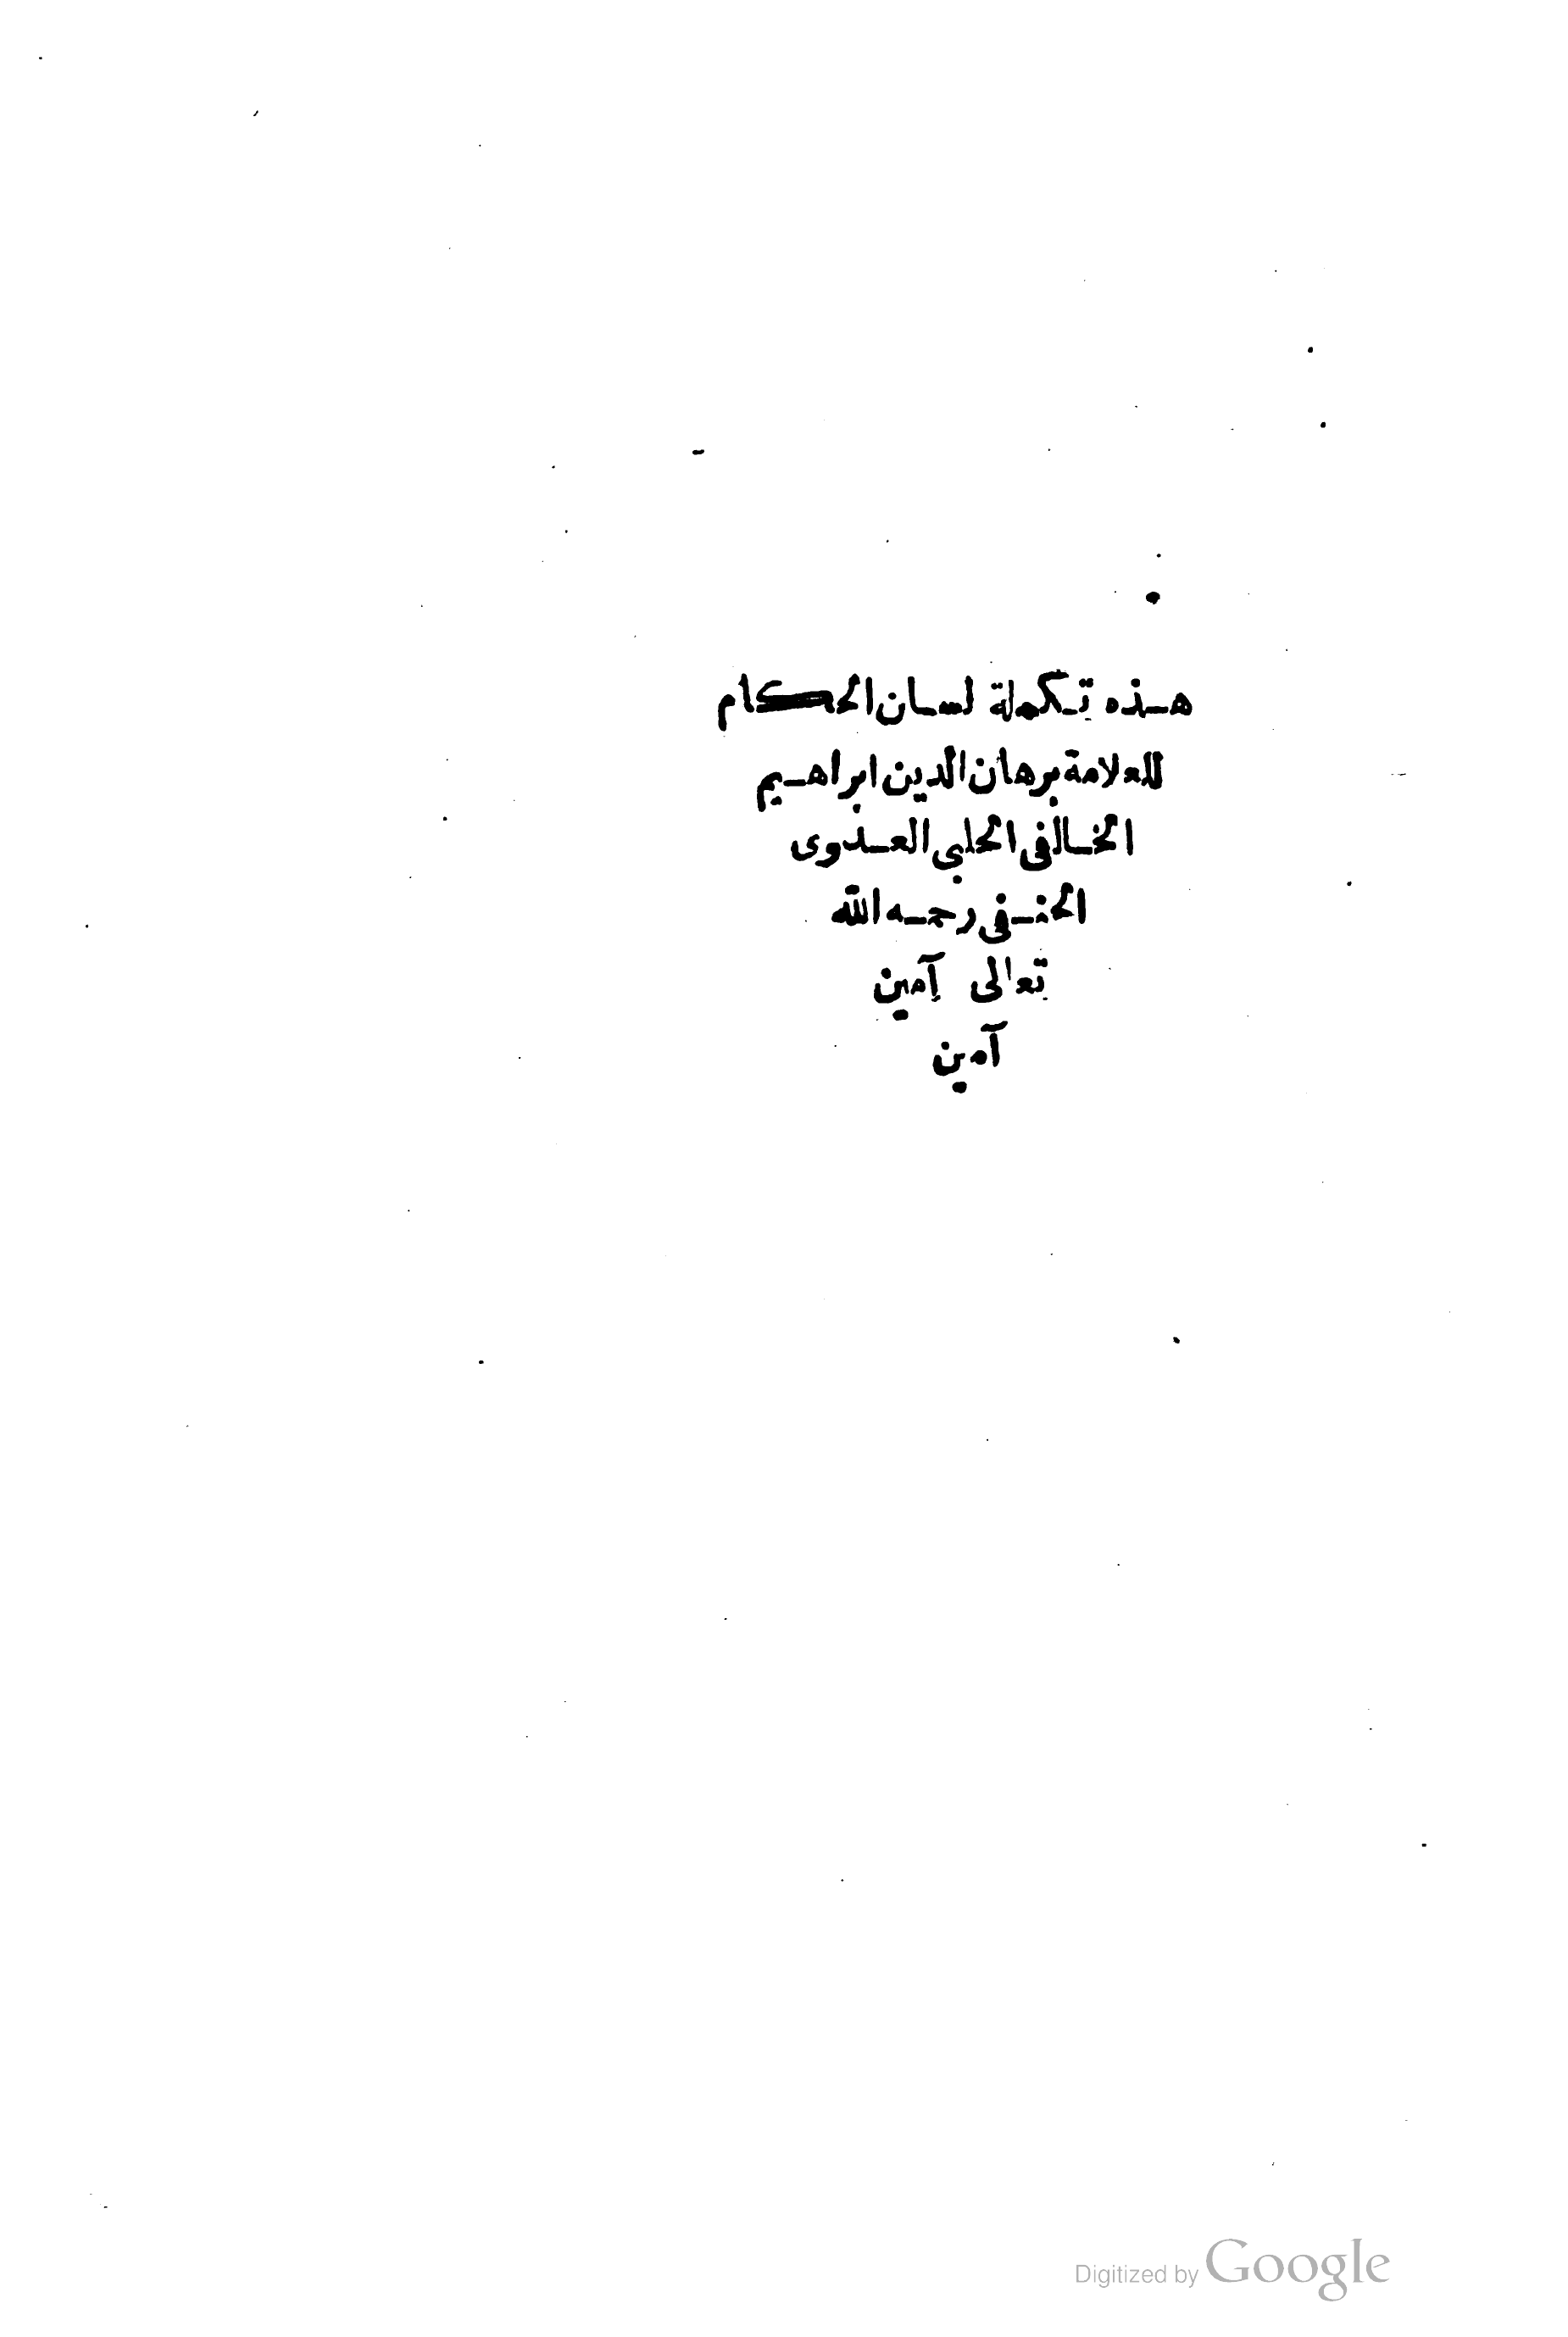 هذه تكملة لسان الحكام
للعلامة برهان الدين ابراهيم
الخالفى الحلبي العدوى
الحنفى رحمه الله
تعالى آمين
آمين
Digitized by Google